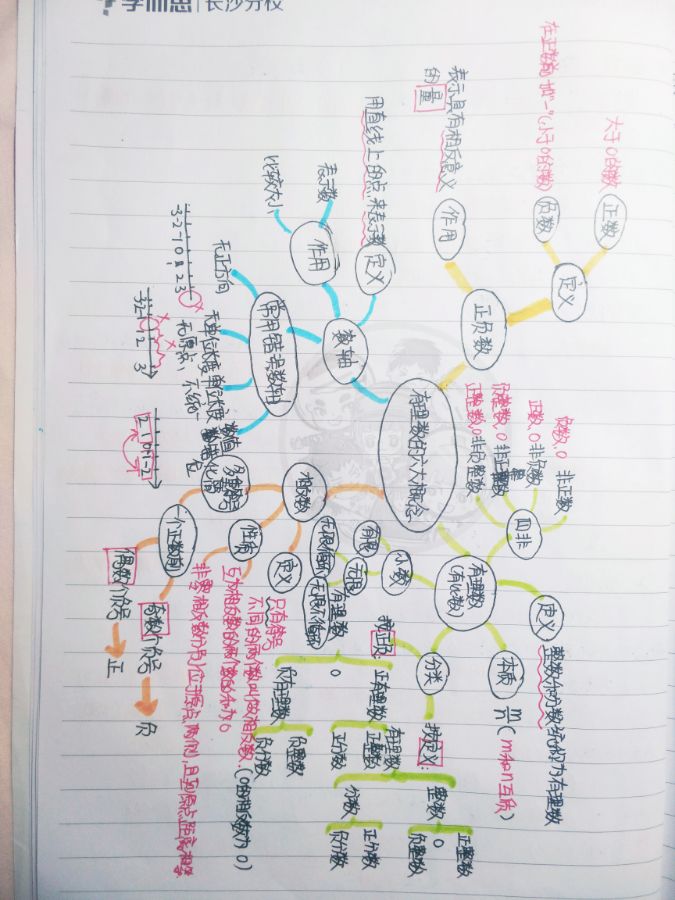 学而思 | 长沙分校
有理数的六大概念
正负数
定义
正数
大于0的数
负数
在正数前加“-”(小于0的数)
作用
表示具有相反意义
的量
数轴
定义
用直线上的点来表示数
作用
表示数
比较大小
常用错误数轴
无正方向
-3 -2 -1 0 1 2 3
无原点
-3 -2 -1 1 2 3
无单位长度
单位长度
不统一
有理数
(有比数)
定义
整数和分数统称为有理数
本质
m/n (m和n互质)
分类
按定义:
有理数
整数
正整数
0
负整数
分数
正分数
负分数
按正负
有理数
正有理数
正整数
正分数
0
负有理数
负整数
负分数
小数
有限
无限
无限循环
无限不循环
四非
非正数
负数、0
非负数
正数、0
非正整数
负整数、0
非负整数
正整数、0
相反数
定义
只有符号
不同的两个数叫做相反数.(0的相反数为0)
性质
互为相反数的两个数的和为0
非零相反数分别位于原点两侧,且到原点距离相等
多重符号
化简
一个正数前
偶数个负号
正
奇数个负号
负